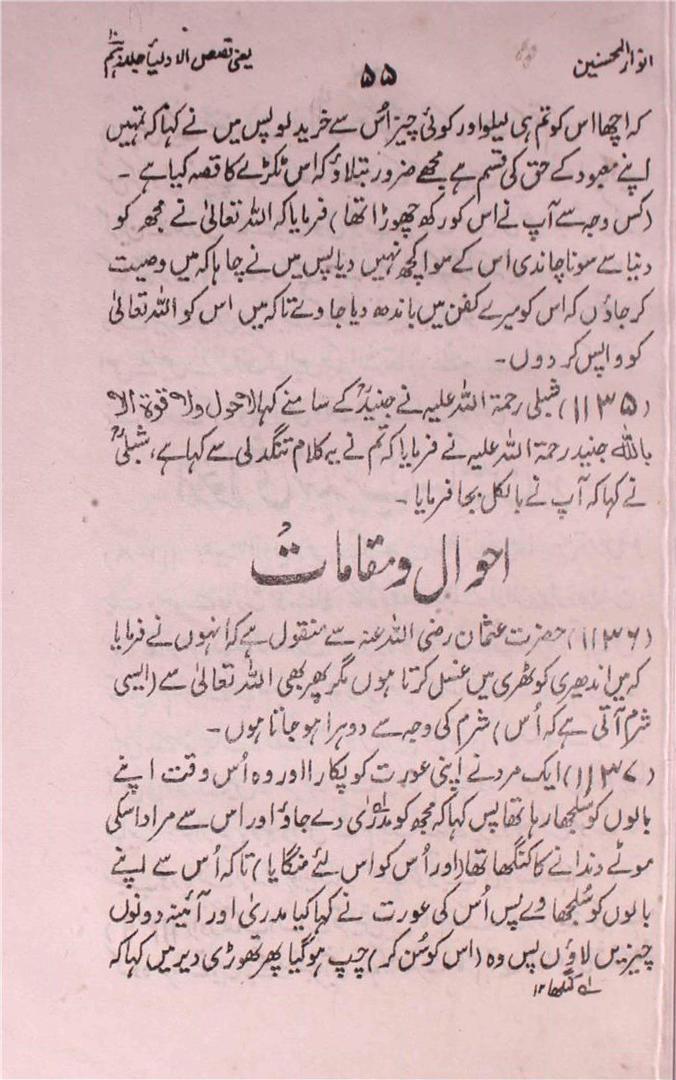 انوار المحسنین
۵۵
یعنی قصص الاولیا جلد دہم
کہ اچھا اس کو تم ہی لیلو اور کوئی چیز اُس سے خرید لو پس میں نے کہا کہ تمہیں
اپنے معبود کے حق کی قسم ہے مجھے ضرور بتلاؤ کہ اس ٹکڑے کا قصہ کیا ہے ۔
(کس وجہ سے آپ نے اس کو رکھ چھوڑا تھا) فرمایا کہ اللہ تعالیٰ نے مجھ کو
دنیا سے سونا چاندی اس کے سوا کچھ نہیں دیا پس میں نے چاہا کہ میں وصیت
کر جاؤں کہ اس کو میرے کفن میں باندھ دیا جاوے تاکہ میں اس کو اللہ تعالیٰ
کو واپس کر دوں ۔
(۱۱۳۵) شبلی رحمۃ اللہ علیہ نے جنیدؒ کے سامنے کہا لاحول ولا قوۃ الا
باللہ جنید رحمۃ اللہ علیہ نے فرمایا کہ تم نے یہ کلام تنگدلی سے کہا ہے، شبلیؒ
نے کہا کہ آپ نے بالکل بجا فرمایا ۔
احوال و مقامات
(۱۱۳۶) حضرت عثمان رضی اللہ عنہ سے منقول ہے کہ انہوں نے فرمایا
کہ میں اندھیری کوٹھری میں غسل کرتا ہوں مگر پھر بھی اللہ تعالیٰ سے (ایسی
شرم آتی ہے کہ اُس) شرم کی وجہ سے دوہرا ہو جاتا ہوں ۔
(۱۱۳۷) ایک مرد نے اپنی عورت کو پکارا اور وہ اُس وقت اپنے
بالوں کو سُلجھا رہا تھا پس کہا کہ مجھ کو مدریٰ دے جاؤ اور اس سے مراد اسکی
موٹے دندانے کا کنگھا تھا (اور اُس کو اس لئے منگایا) تاکہ اُس سے اپنے
بالوں کو سُلجھاوے پس اُس کی عورت نے کہا کیا مدریٰ اور آئینہ دونوں
چیزیں لاؤں پس وہ (اس کو سُن کر) چپ ہو گیا پھر تھوڑی دیر میں کہا کہ
لے کنگھا ۱۲